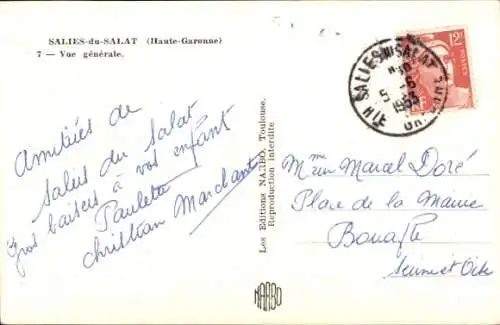 SALIES-du-SALAT (Haute-Garonne)
7 — Vue générale.
Amitiées de
Salies du Salat
Gros baisers à vos enfant
Paulette
Christian Marchant
Les Editions NARBO, Toulouse.
Reproduction interdite
NARBO
12F
POSTES
RF
SALIES DU SALAT
5-6
1953
HTE GARONNE
Mme Marcel Doré
Place de la Mairie
Bonafle
Seine et Oise